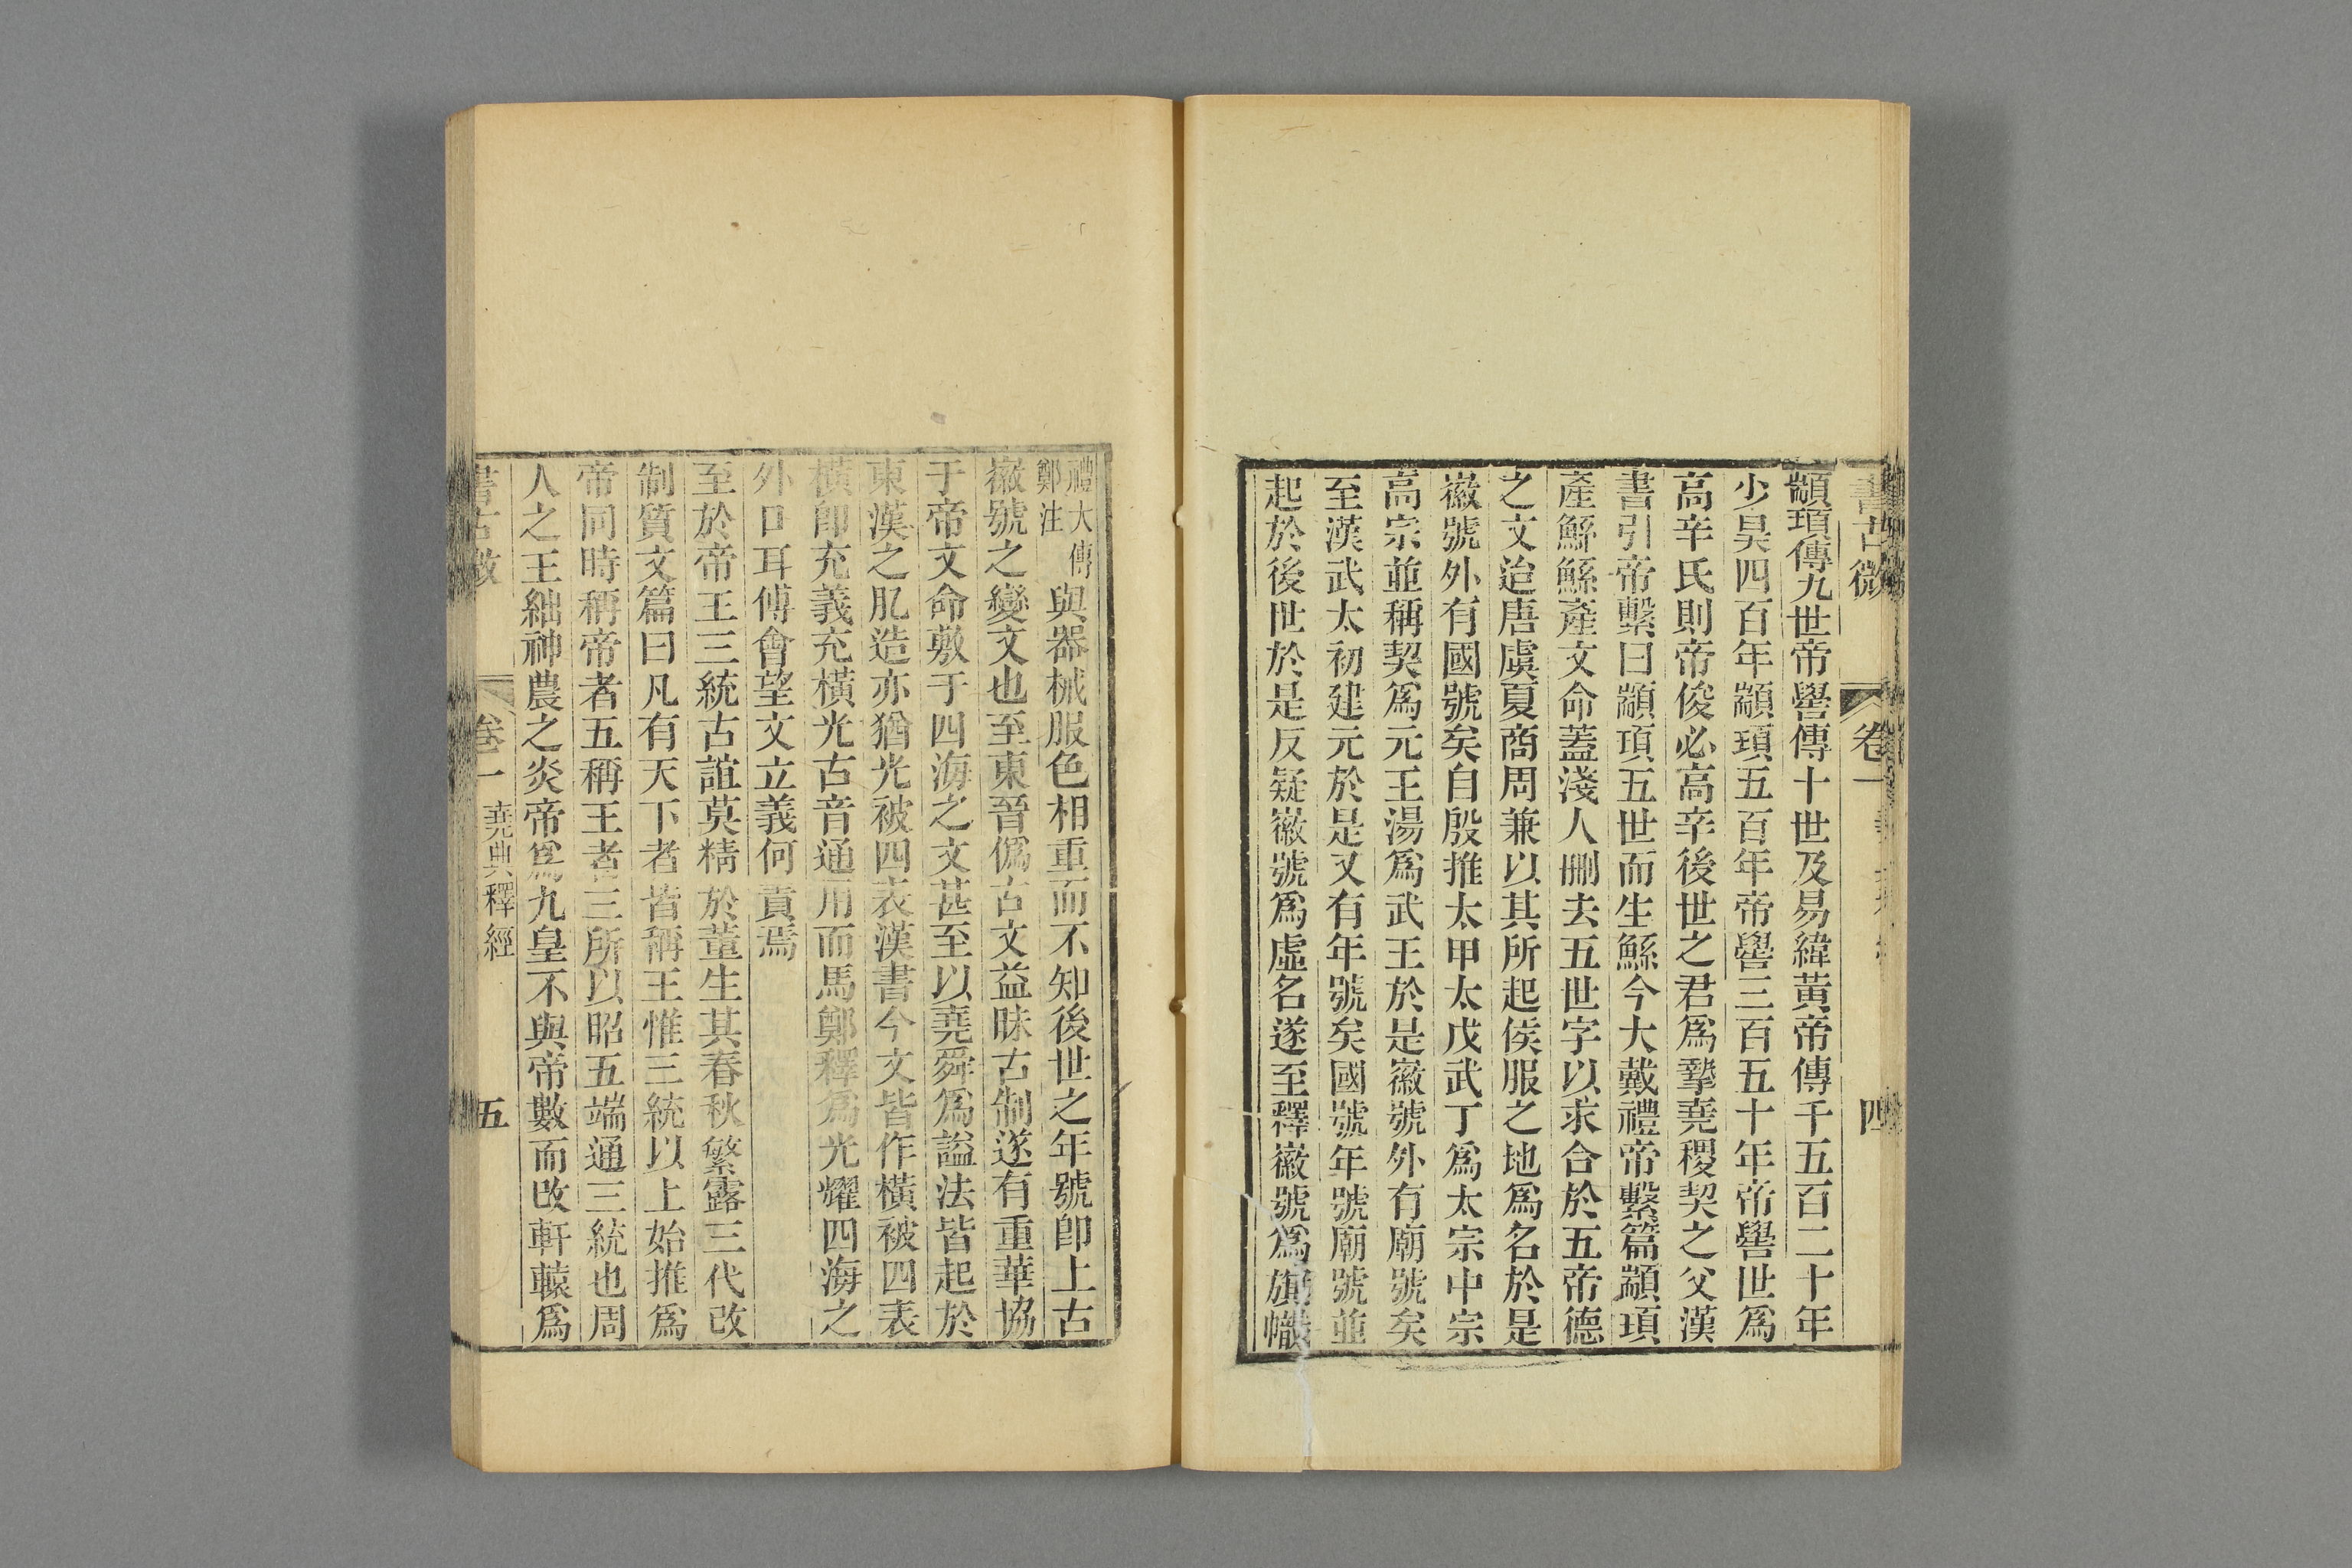 書古微 卷一 四
顓頊傳九世帝嚳傳十世及易緯黃帝傳千五百二十年
少昊四百年顓頊五百年帝嚳三百五十年帝嚳世爲
高辛氏則帝俊必高辛後世之君爲摯堯稷契之父漢
書引帝繫曰顓頊五世而生鯀今大戴禮帝繫篇顓頊
產鯀鯀產文命蓋淺人刪去五世字以求合於五帝德
之文迨唐虞夏商周兼以其所起侯服之地爲名於是
徽號外有國號矣自殷推太甲太戊武丁爲太宗中宗
高宗並稱契爲元王湯爲武王於是徽號外有廟號矣
至漢武太初建元於是又有年號矣國號年號廟號並
起於後世於是反疑徽號爲虛名遂至釋徽號爲旗幟
禮大傳
鄭注
與器械服色相重而不知後世之年號卽上古
徽號之變文也至東晉僞古文益昧古制遂有重華協
于帝文命敷于四海之文甚至以堯舜爲謚法皆起於
東漢之肊造亦猶光被四表漢書今文皆作橫被四表
橫卽充義充橫光古音通用而馬鄭釋爲光耀四海之
外口耳傅會望文立義何責焉
至於帝王三統古誼莫精於董生其春秋繁露三代改
制質文篇曰凡有天下者皆稱王惟三統以上始推爲
帝同時稱帝者五稱王者三所以昭五端通三統也周
人之王絀神農之炎帝爲九皇不與帝數而改軒轅爲
書古微 卷一 堯典釋經 五